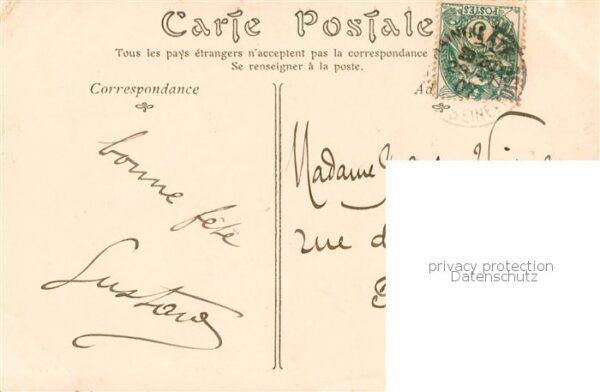 Carte Postale
Tous les pays étrangers n'acceptent pas la correspondance
Se renseigner à la poste.
Correspondance
POSTES
SEINE
bonne fête
Gustave
Madame
rue d
privacy protection
Datenschutz